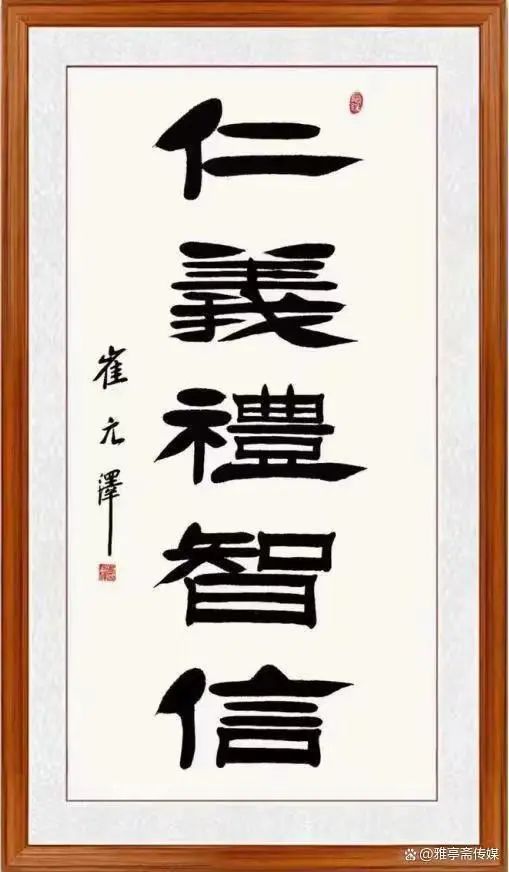 仁義禮智信
崔元澤
@雅亭斋传媒